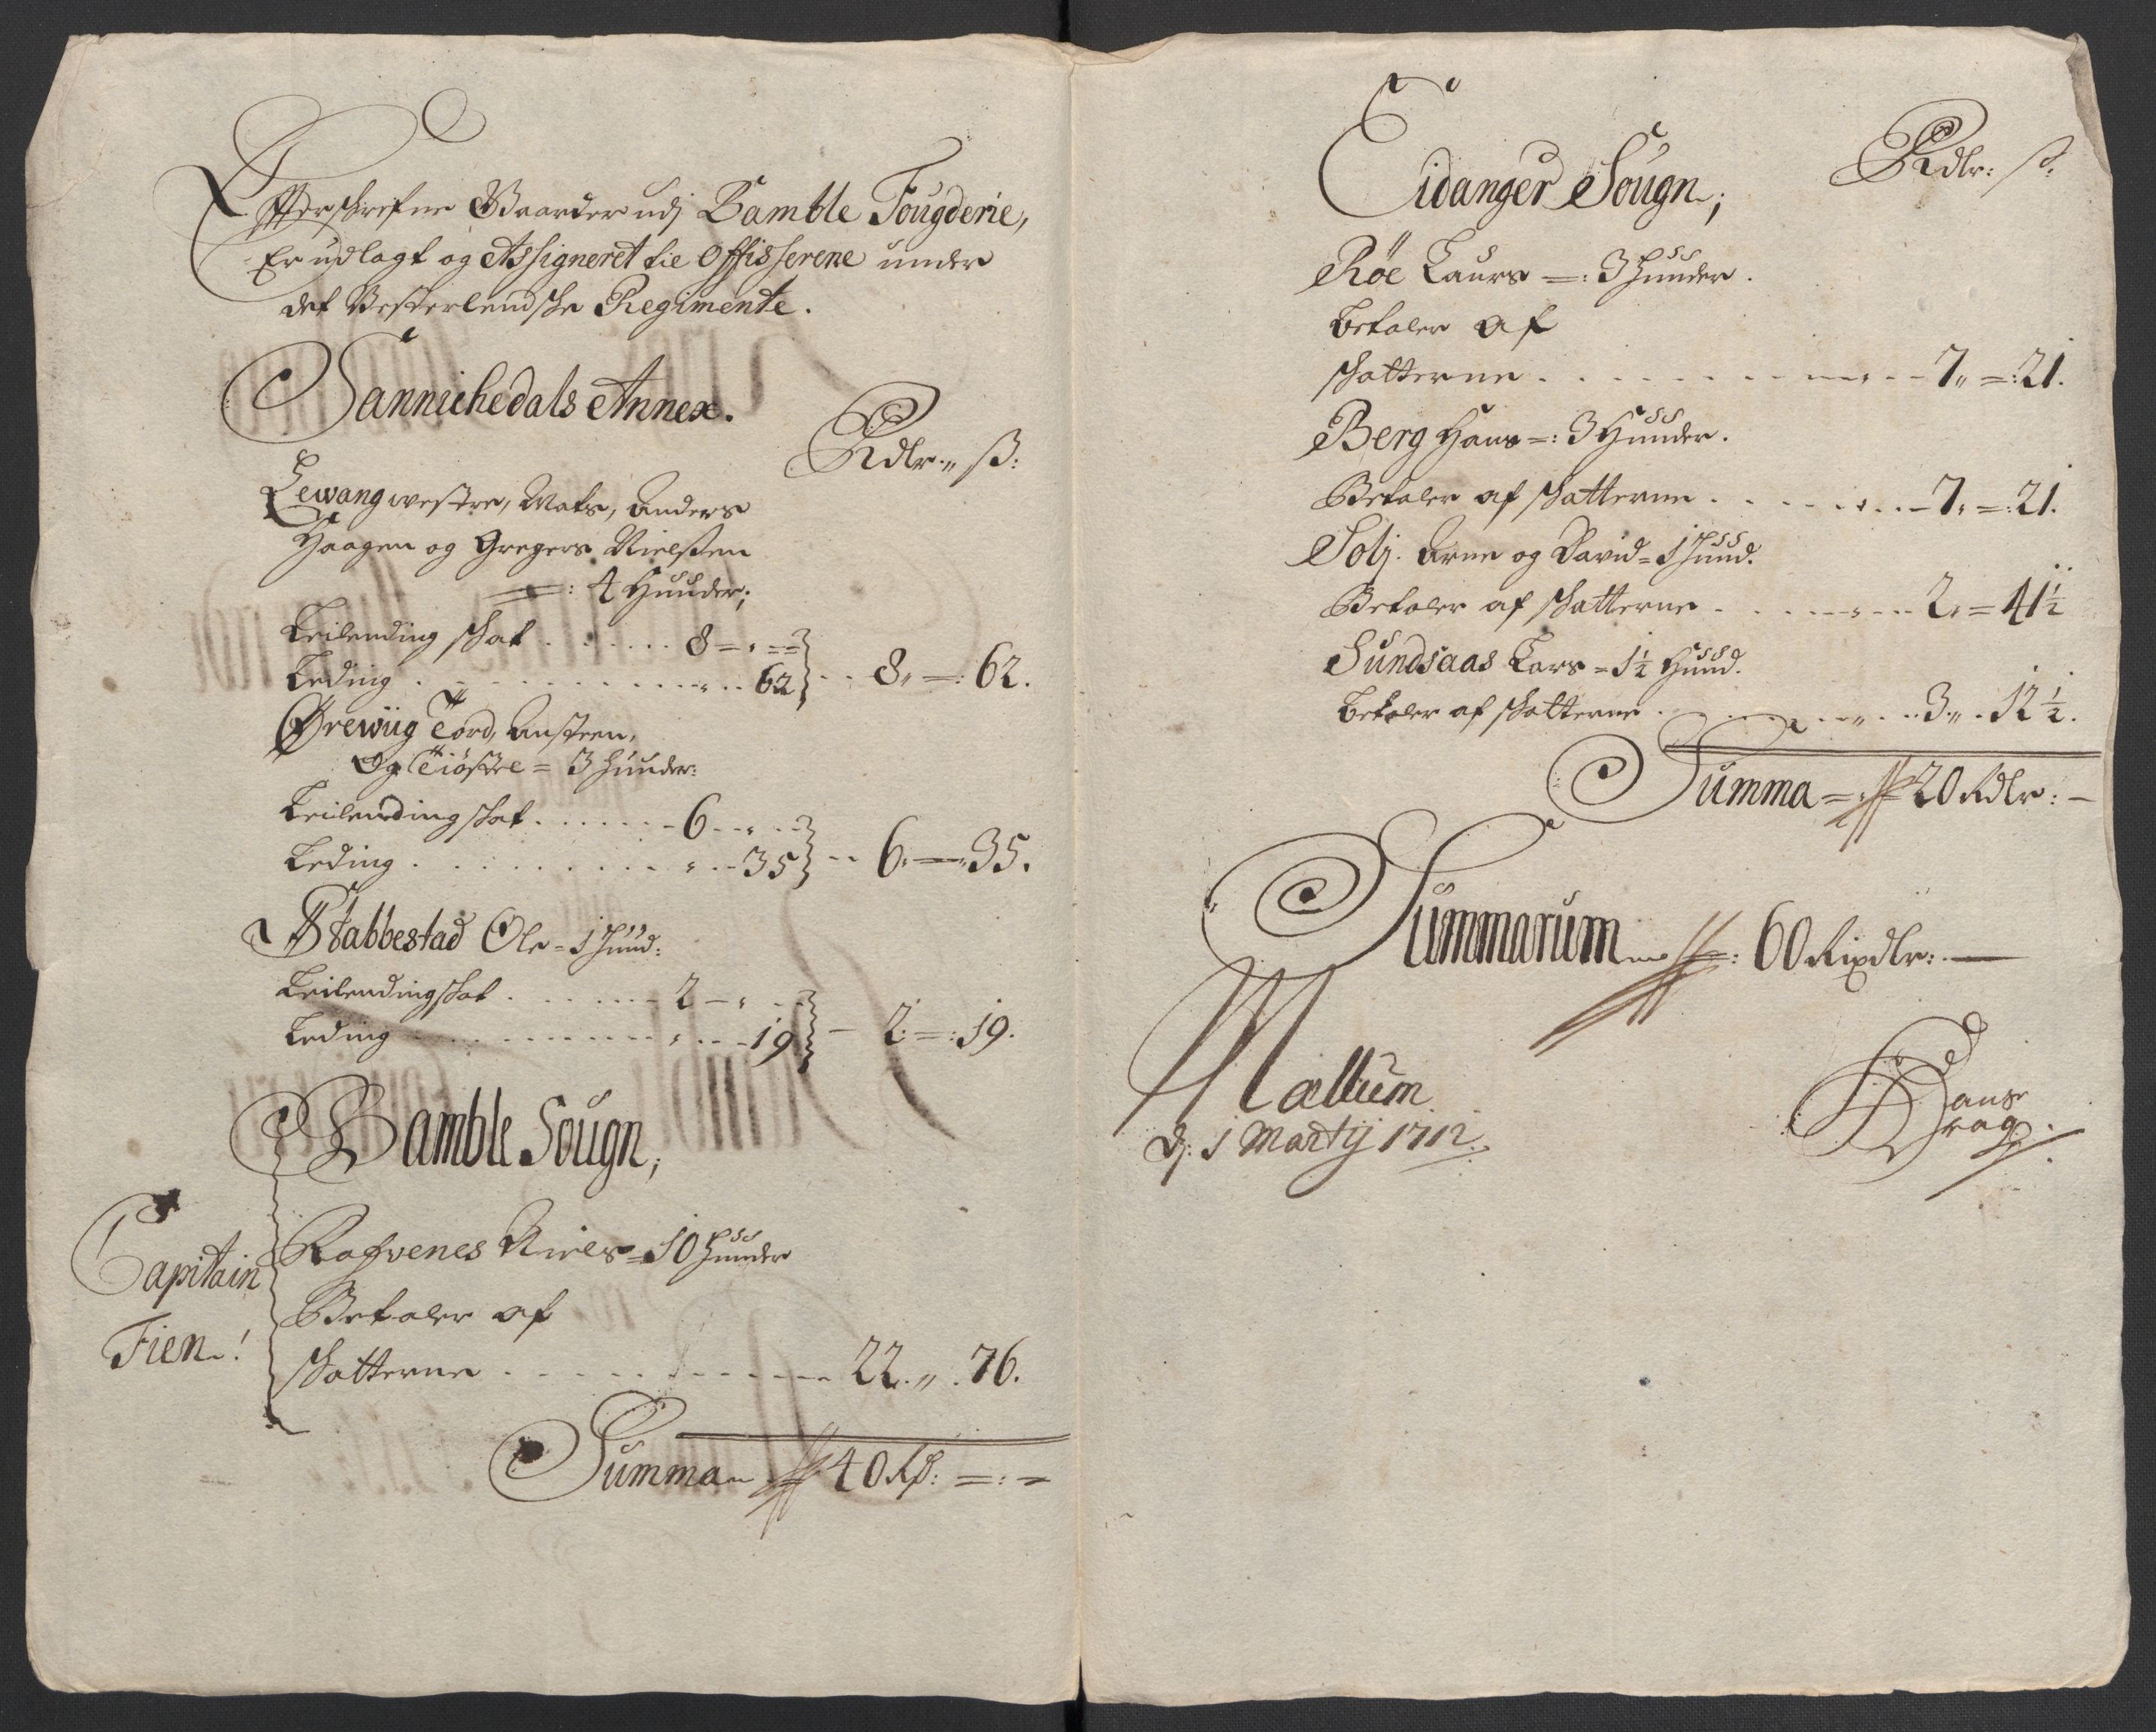 Efterskrefne Gaarder udj Bamble Fougderie,
Er udlagt og Assigneret til Offisserene under
det Vesterlendske Regimente.
Sannichedals Annex.
Rdlr: ß:
Lewang westre, Mats, Anders
Haagen og Gregers Nielsen
=: 4 Huuder;
Leilending skat . . . . . . 8 = " ==
Leding . . . . . . . . . " . . 62 } . . 8 " =: 62.
Ørewiig Tord, Austeen,
Og Tiøstel = 3 huuder:
Leilending skat . . . . . . 6 . . " . .
Leding . . . . . . . . " . . 35 } . . 6 " = 35.
Stabbestad Ole = 1 huud:
Leilendingskat . . . . . . 2 - " . .
Leding . . . . . . . . . " . . 19 } - 2: =: 19.
Bamble Sougn,
Capitain
Fien!
Rafvenes Niels = 10 huuder
Betaler af
skatterne . . . . . . . . . 22 . " . 76.
Summa 40 Rd: =: =
Eidanger Sougn;
Rdlr: ß:
Røe Laurs =: 3 huuder.
Betaler af
skatterne . . . . . . . . . . 7 " =: 21.
Berg Hans =: 3 Huuder.
Betaler af skatterne . . . . . . 7 " =: 21.
Solj. Arne og David = 1 huud.
Betaler af skatterne . . . . . . 2 " = 41½
Sundsaas Lars = 1½ Huud.
Betaler af skatterne . . . . . . 3 " . 12½.
Summa = 20 Rdlr: -
Summarum =: 60 Rixdlr: -
Mællum
D: 1 Martij 1712.
Hans
Drag.